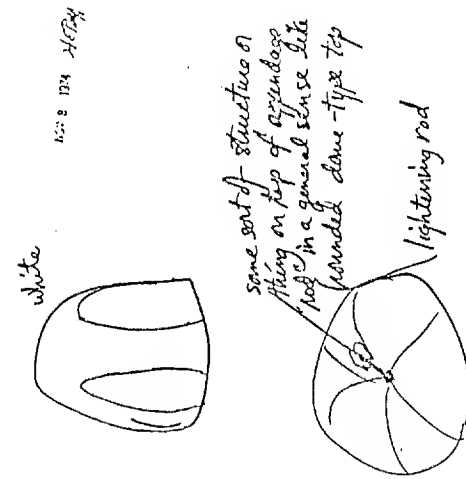 white
some sort of structure or
thing on top of appendage
rod in a general sense like
rounded dome-type top
lightening rod